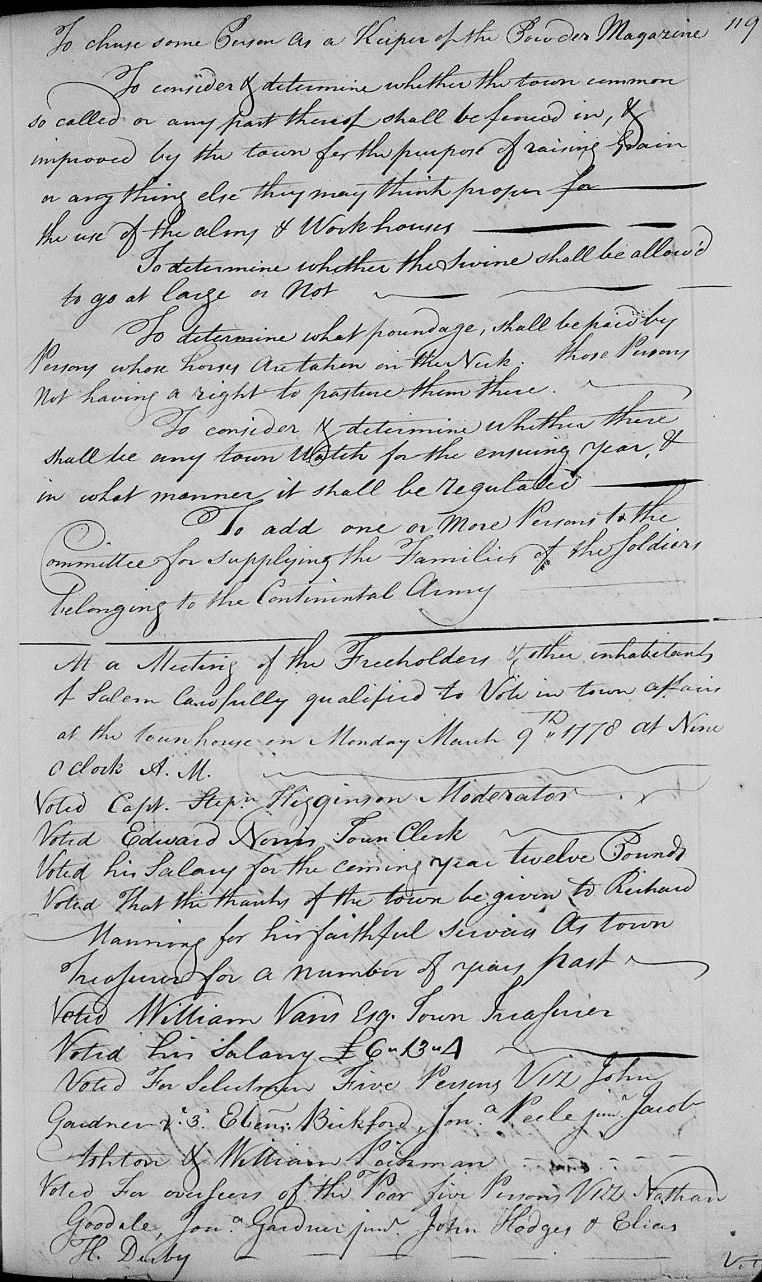 119
To chuse some Person as a Keeper of the Powder Magazine
To consider & determine whether the town common
so called or any part thereof shall be fenced in, &
improved by the town for the purpose of raising Grain
or any thing else they may think proper for
the use of the alms & Workhouses
To determine whether the Swine shall be allow'd
to go at large or Not
To determine what poundage, shall be paid by
Persons whose horses are taken on the Neck. those Persons
Not having a right to pasture them there.
To consider & determine whether there
shall be any town Watch for the ensuing year, &
in what manner it shall be regulated
To add one or More Persons to the
Committee for supplying the Families of the Soldiers
belonging to the Continental Army
At a Meeting of the Freeholders & other inhabitants
of Salem Lawfully qualified to Vote in town affairs
at the townhouse on Monday March 9th 1778 at Nine
o Clock A. M.
Voted Capt. Stepn Higginson Moderator
Voted Edward Norris Town Clerk
Voted his Salary for the coming year twelve Pounds
Voted That the thanks of the town be given to Richard
Manning for his faithful services As town
Treasurer for a number of years past
Voted William Vans Esq. Town Treasurer
Voted his Salary £6"13"4
Voted For Selectmen Five Persons Vizz John
Gardner ye 3d Ebenr Bickford, Jona Peele junr Jacob
Ashton & William Pickman
Voted For overseers of the Poor five Persons Vizz Nathan
Goodale, Jona Gardner junr John Hodges & Elias
H. Derby